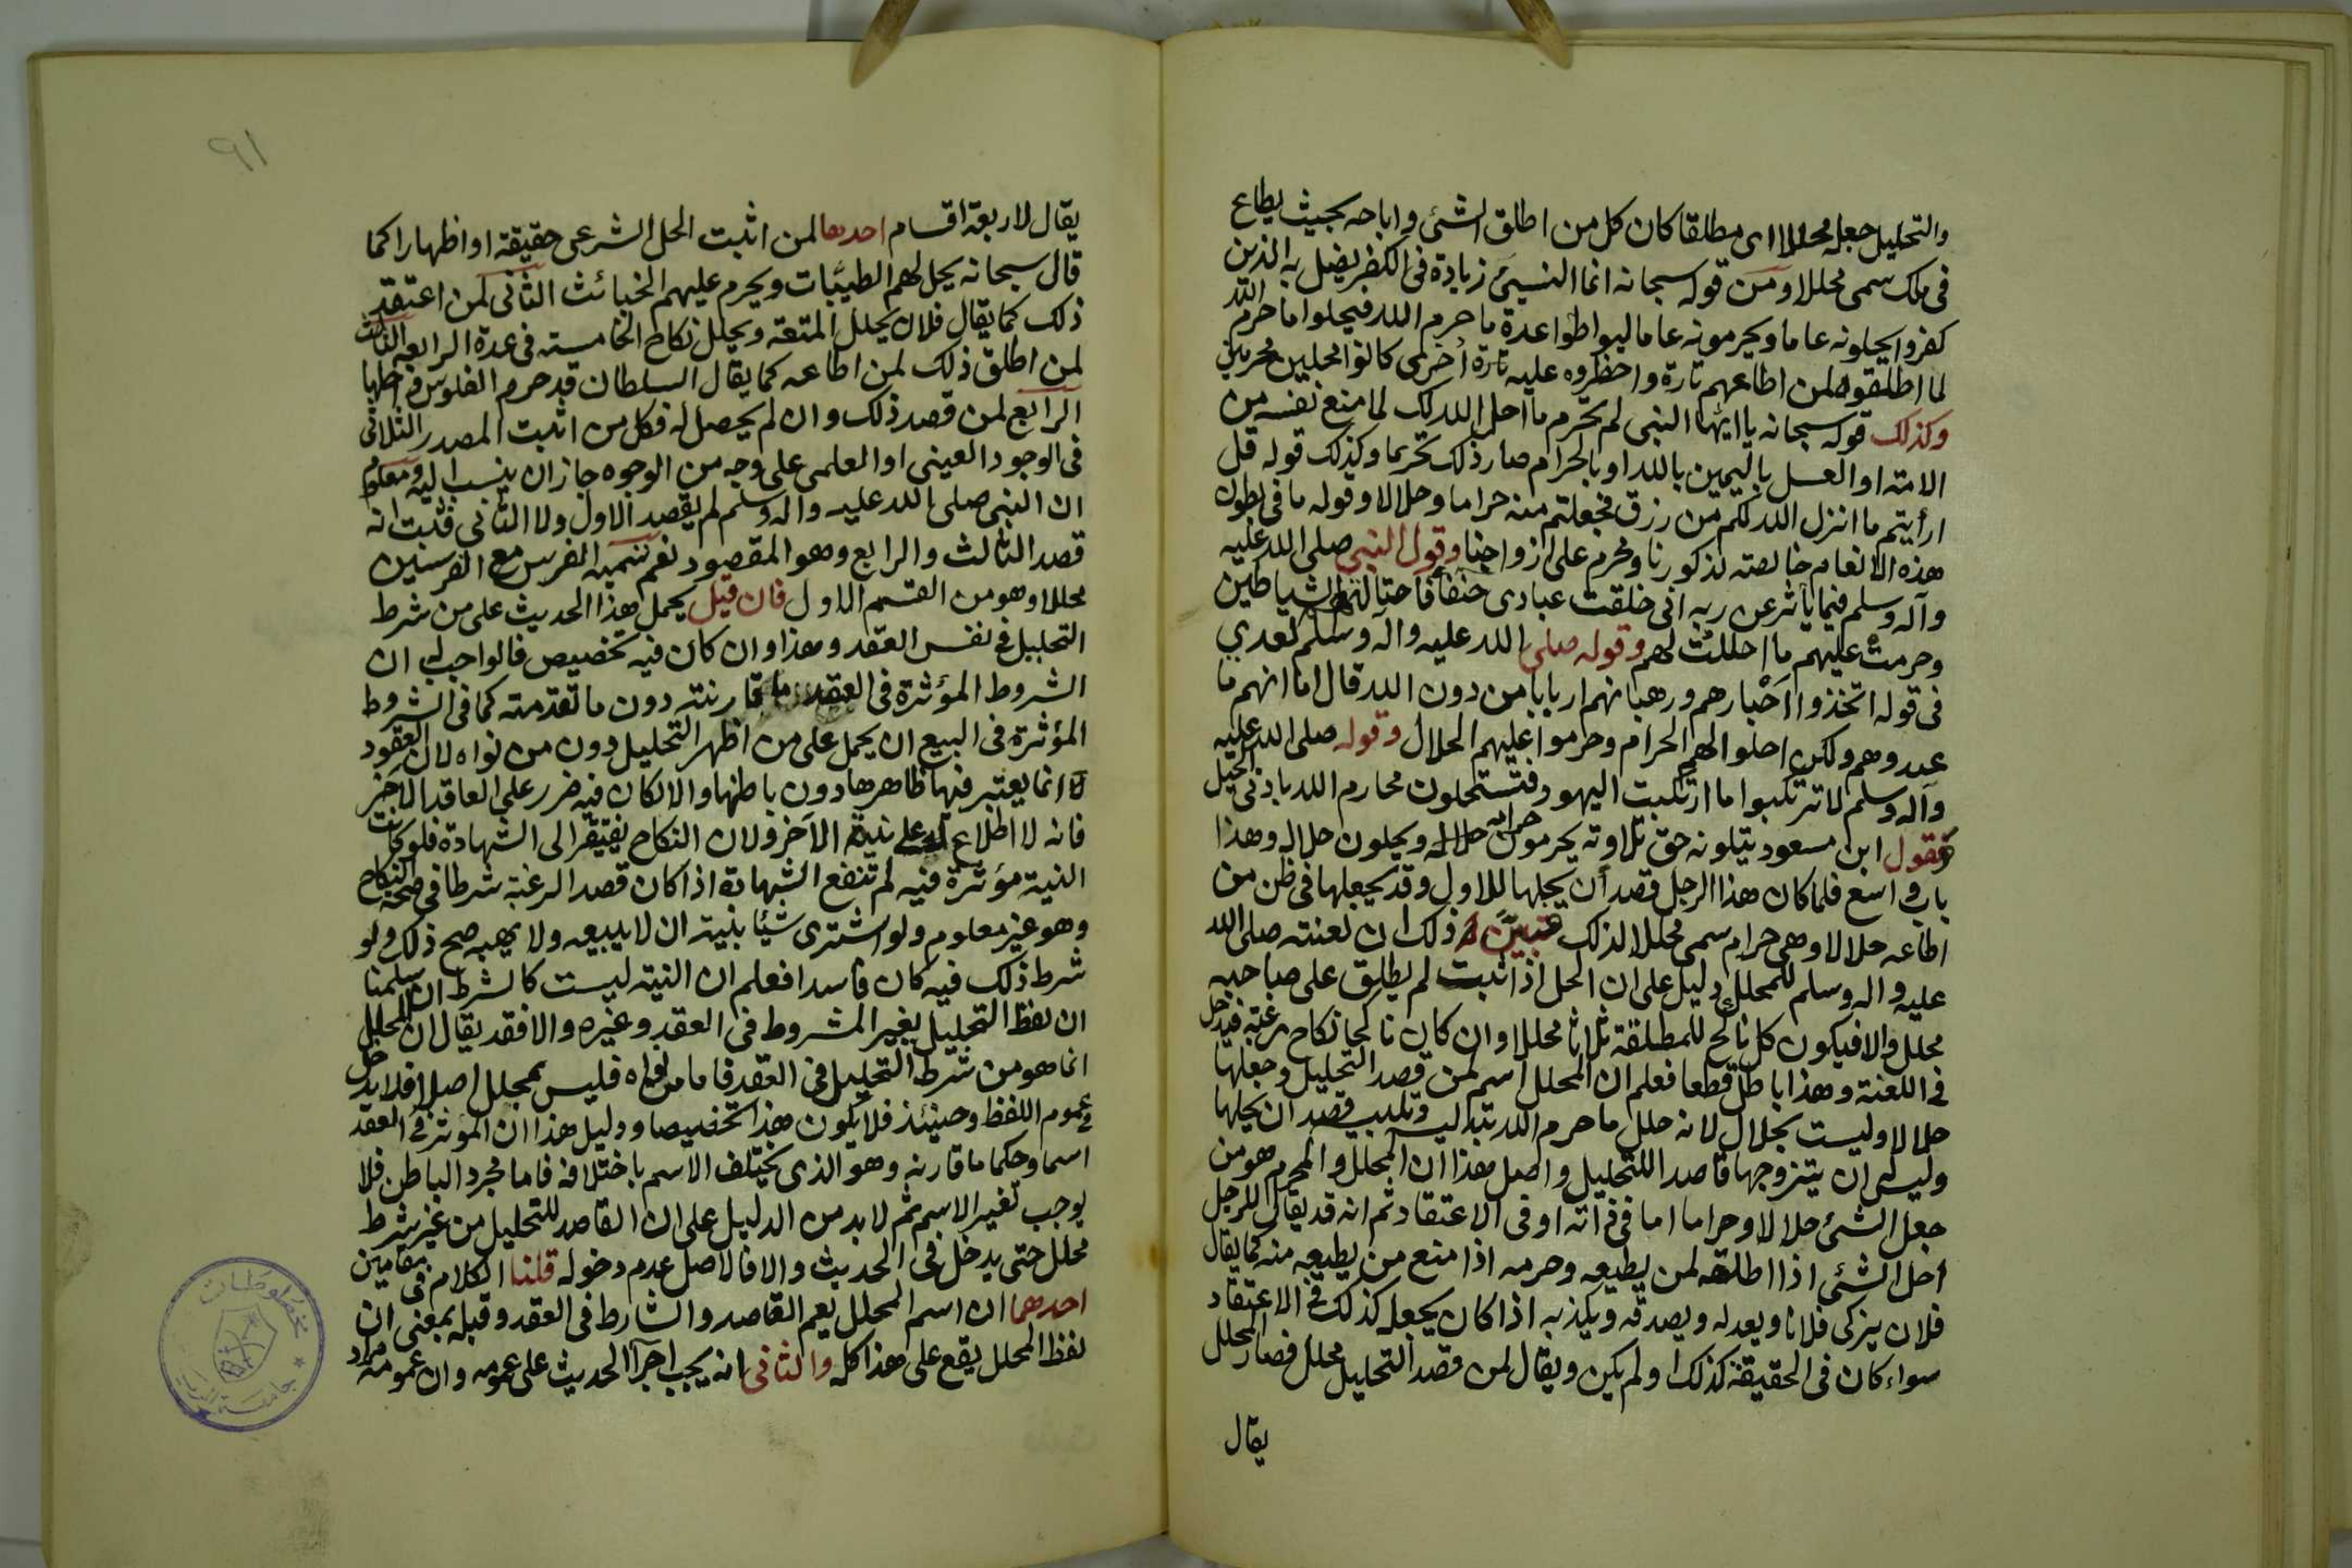 والتحليل جعله محللا اى مطلقا كان كل من اطلق الشئ واباحه بحيث يطاع
فى ملك سمى محللا ومن قوله سبحانه انما النسيئ زيادة فى الكفر يضل به الذين
كفروا يحلونه عاما ويحرمونه عاما ليواطؤا عدة ما حرم الله فيحلوا ما حرم الله
لما اطلقوه لمن اطاعهم تارة واحظروه عليه تارة أخرى كانوا محلين محرمين
وكذلك قوله سبحانه يا ايها النبى لم تحرم ما احل الله لك لما منع نفسه من
الامة او العسل باليمين بالله او بالحرام صار ذلك تحريما وكذلك قوله قل
ارأيتم ما انزل الله لكم من رزق فجعلتم منه حراما وحلالا وقوله ما فى بطون
هذه الانعام خالصة لذكورنا ومحرم على ازواجنا وقول النبى صلى الله عليه
وآله وسلم فيما يأثر عن ربه انى خلقت عبادى حنفآ فاحتالتهم الشياطين
وحرمت عليهم ما احللت لهم وقوله صلى الله عليه وآله وسلم لعدي
فى قوله اتخذوا احبارهم ورهبانهم اربابا من دون الله قال اما انهم ما
عبدوهم ولكن احلوا لهم الحرام وحرموا عليهم الحلال وقوله صلى الله عليه
وآله وسلم لا ترتكبوا ما ارتكبت اليهود فتستحلون محارم الله بادنى الحيل
وقول ابن مسعود يتلونه حق تلاوته يحرمون حرامه ويحلون حلاله وهذا
باب واسع فلما كان هذا الرجل قصد أن يحلها للاول وقد يجعلها فى ظن من
اطاعه حلالا وهى حرام سمى محللا لذلك تبين ذلك ان لعنته صلى الله
عليه واله وسلم للمحلل دليل على ان الحل اذا ثبت لم يطلق على صاحبه
محلل والا فيكون كل ناكح للمطلقة ثلاثا محللا وان كان ناكحا نكاح رغبة فيدخل
فى اللعنة وهذا باطل قطعا فعلم ان المحلل اسم لمن قصد التحليل وجعلها
حلالا وليست بحلال لانه حلل ما حرم الله بتدليسه وتلبيسه قصد ان يحلها
وليس ان يتزوجها قاصدا للتحليل واصل هذا ان المحلل والمحرم هو من
جعل الشئ حلالا وحراما اما فى ذاته او فى الاعتقاد ثم انه قد يقال للرجل
احل الشئ اذا اطلقه لمن يطيعه وحرمه اذا منع من يطيعه منه كما يقال
فلان يزكى فلانا ويعدله ويصدقه ويكذبه اذا كان يجعله كذلك فى الاعتقاد
سواء كان فى الحقيقة كذلك او لم يكن ويقال لمن قصد التحليل محلل فصار المحلل
يقال
٩١
يقال لاربعة اقسام احدها لمن اثبت الحل الشرعى حقيقة او اظهارا كما
قال سبحانه يحل لهم الطيبات ويحرم عليهم الخبائث الثانى لمن اعتقد
ذلك كما يقال فلان يحلل المتعة ويحلل نكاح الخامسة فى عدة الرابعة الثالث
لمن اطلق ذلك لمن اطاعه كما يقال السلطان قد حرم الفلوس
الرابع لمن قصد ذلك وان لم يحصل له فكل من اثبت المصدر الثلاثى
فى الوجود العينى او العلمى على وجه من الوجوه جاز ان ينسب اليه ومعلوم
ان النبى صلى الله عليه واله وسلم لم يقصد الاول ولا الثانى فثبت انه
قصد الثالث والرابع وهو المقصود نعم تسمية الفرس مع الفرسين
محللا وهو من القسم الاول فان قيل يحمل هذا الحديث على من شرط
التحليل فى نفس العقد وهذا وان كان فيه تخصيص فالواجب ان
الشروط المؤثرة فى العقد ما قارنته دون ما تقدمته كما فى الشروط
المؤثرة فى البيع ان يحمل على من اظهر التحليل دون من نواه لان العقود
انما يعتبر فيها ظاهرها دون باطنها والا لكان فيه ضرر على العاقد الآخر
فانه لا اطلاع له على نية الآخر ولان النكاح يفتقر الى الشهادة فلو كانت
النية مؤثرة فيه لم تنفع الشهادة اذا كان قصد الرغبة شرطا فى صحة النكاح
وهو غير معلوم ولو اشترى شيئا بنية ان لا يبيعه ولا يهبه صح ذلك ولو
شرط ذلك فيه كان فاسدا فعلم ان النية ليست كالشرط سلمنا
ان لفظ التحليل بغير المشروط فى العقد وغيره والا فقد يقال ان المحلل
انما هو من شرط التحليل فى العقد فاما من نواه فليس بمحلل اصلا فلا يدخل
فى عموم اللفظ وحينئذ فلا يكون هذا تخصيصا ودليل هذا ان المؤثر فى العقد
اسما وحكما ما قارنه وهو الذى يختلف الاسم باختلافه فاما مجرد الباطن فلا
يوجب تغير الاسم ثم لا بد من الدليل على ان القاصد للتحليل من غير شرط
محلل حتى يدخل فى الحديث والا فالاصل عدم دخوله قلنا الكلام فى مقامين
احدهما ان اسم المحلل يعم القاصد والشارط فى العقد وقبله بمعنى ان
لفظ المحلل يقع على هذا كله والثانى انه يجب اجرآ الحديث على عمومه وان عمومه مراد
مخطوطات